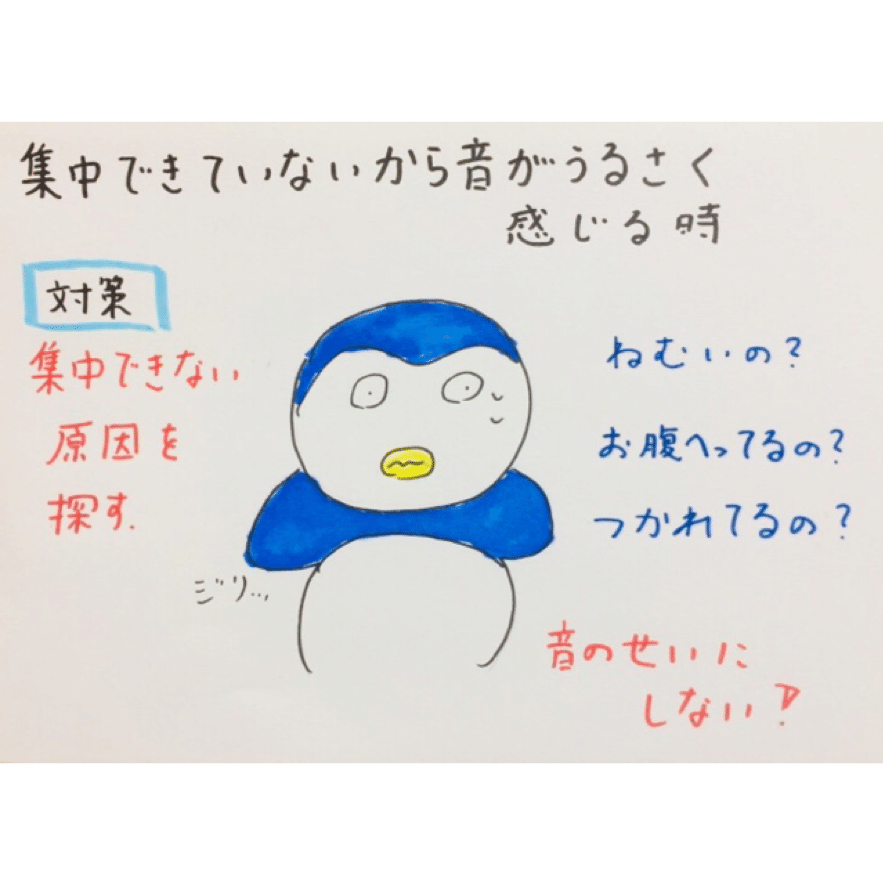 集中できていないから音がうるさく
感じる時
対策
集中できない
原因を
探す.
ねむいの?
お腹へってるの?
つかれてるの?
ジリ...
音のせいに
しない!